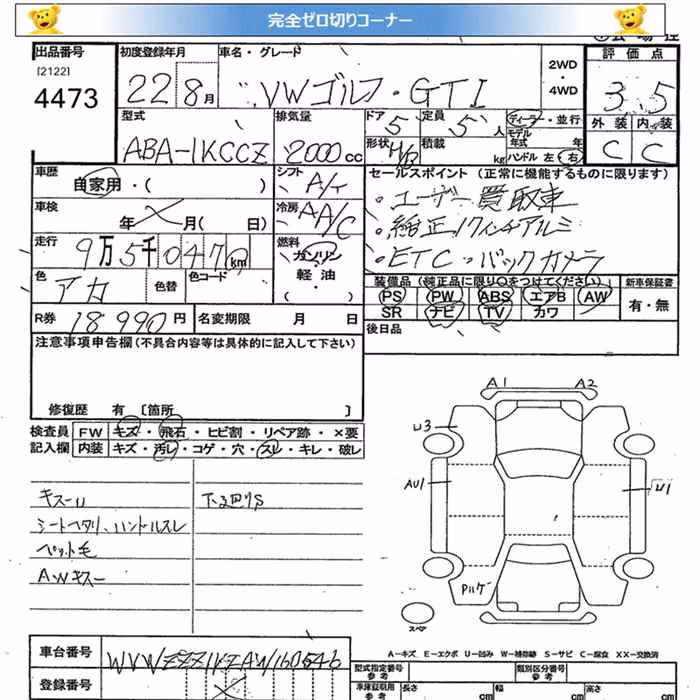 完全ゼロ切りコーナー
出品番号 [2122] 4473
初度登録年月 22 8月
車名・グレード VWゴルフ・GTI
2WD・4WD
評価点 3.5
外装 C 内装 C
型式 ABA-1KCCZ
排気量 2000cc
ドア 5 定員 5人
形状 H/B 積載 kg
ディーラー・並行
モデル年式 年式
ハンドル 左 右
車歴 自家用・( )
シフト A/T
車検 年 月( 日)
冷房 AA/C
走行 9万5千0470km
燃料 ガソリン 軽・油 ・( )
色 アカ 色替 色コード
R券 18990円
名変期限 月 日
セールスポイント (正常に機能するものに限ります)
・ユーザー買取車
・純正17インチアルミ
・ETC・バックカメラ
装備品(純正品に限り○をつけてください) 新車保証書
PS PW ABS エアB AW 有・無
SR ナビ TV カワ
後日品
注意事項申告欄(不具合内容等は具体的に記入して下さい)
修復歴 有 [箇所 ]
検査員 FW キズ・飛石・ヒビ割・リペア跡・×要
記入欄 内装 キズ・汚レ・コゲ・穴・スレ・キレ・破レ
キズー 下廻りS
シートヘタリ、ハンドルスレ
ペット毛
AWキズー
A1 A2
U3
AU1 U1
Pハゲ
スペア
A－キズ E－エクボ U－凹み W－補修跡 S－サビ C－腐食 XX－交換済
車台番号 WVWZZZ1KZAW160546
登録番号
型式指定番号 参考 類別区分番号 参考
車庫証明用 参考 長さ cm 幅 cm 高さ cm